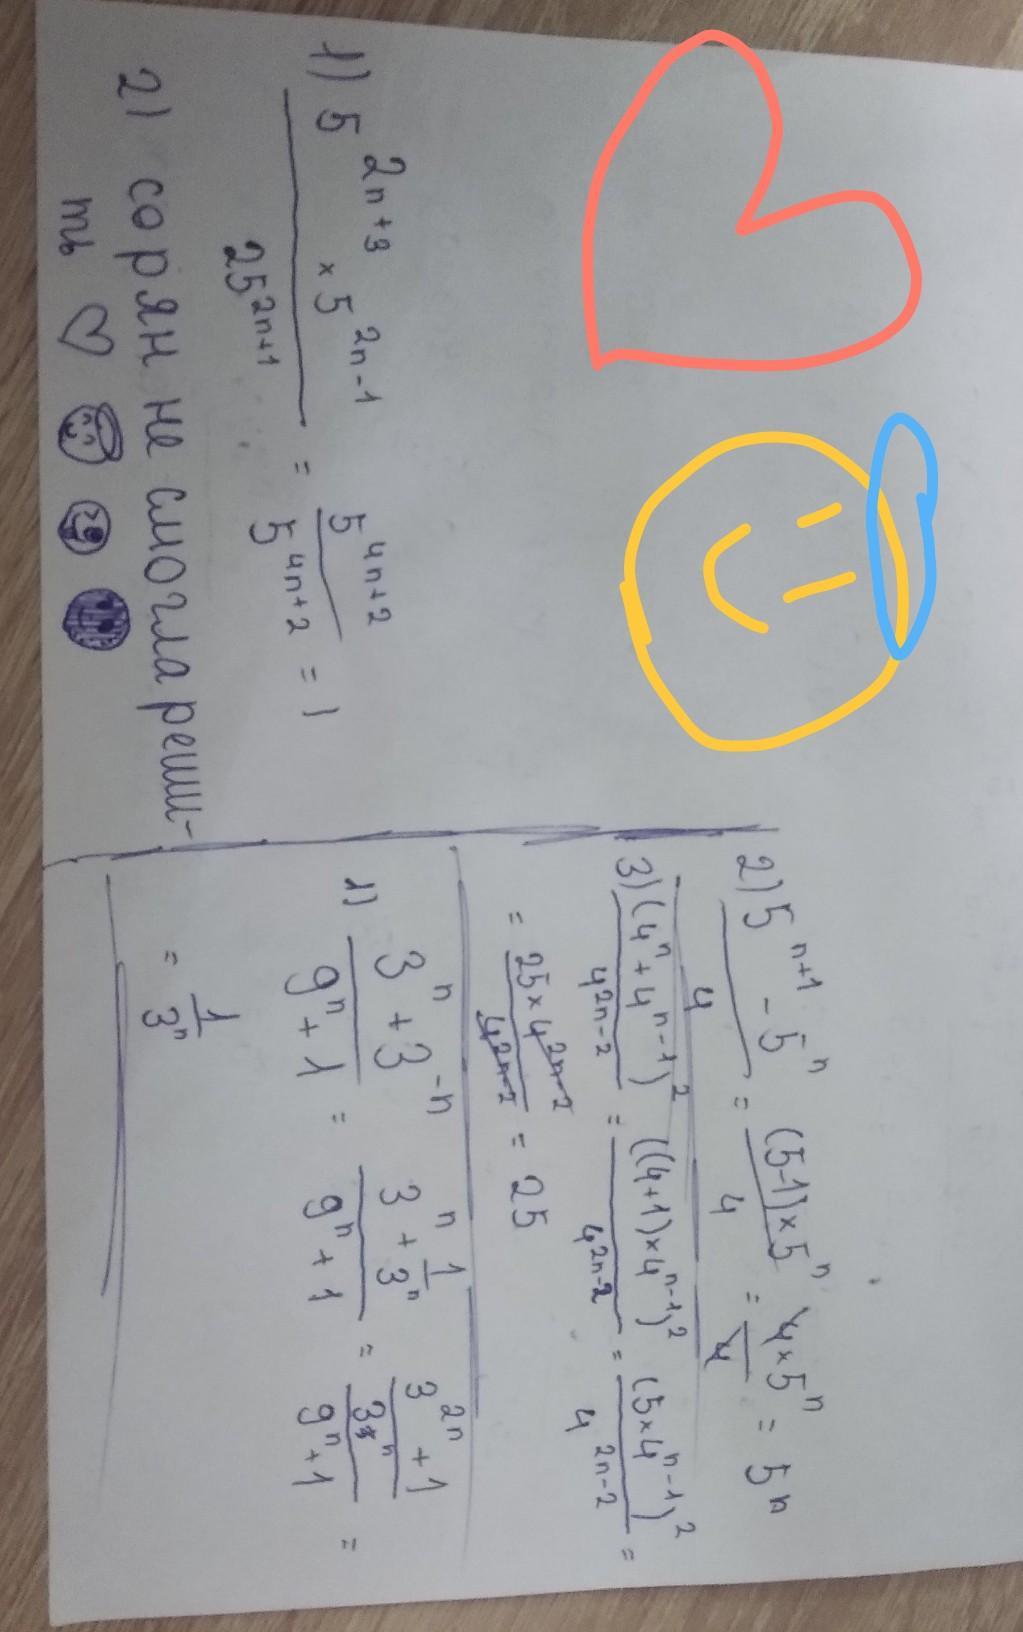 1) 5^{2n+3} × 5^{2n-1} / 25^{2n+1} = 5^{4n+2} / 5^{4n+2} = 1
2) сорян не смогла реши-
ть ♡
2) 5^{n+1} - 5^n / 4 = (5-1)×5^n / 4 = 4×5^n / 4 = 5^n
3) (4^n + 4^{n-1})^2 / 4^{2n-2} = ((4+1)×4^{n-1})^2 / 4^{2n-2} = (5×4^{n-1})^2 / 4^{2n-2} =
= 25×4^{2n-2} / 4^{2n-2} = 25
1) 3^n + 3^{-n} / 9^n + 1 = 3^n + 1/3^n / 9^n + 1 = 3^{2n} + 1 / 3^n / 9^n + 1 =
= 1/3^n